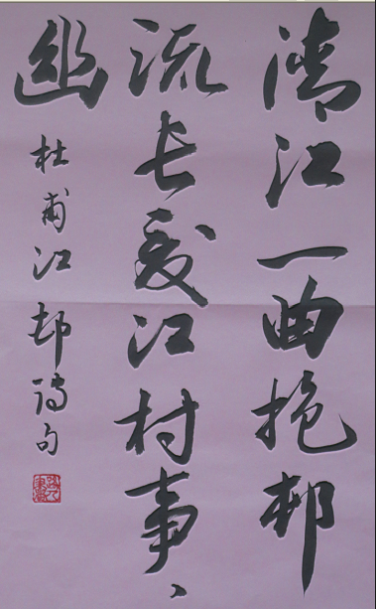 清江一曲抱邨
流长夏江村事、
幽
杜甫江邨诗句